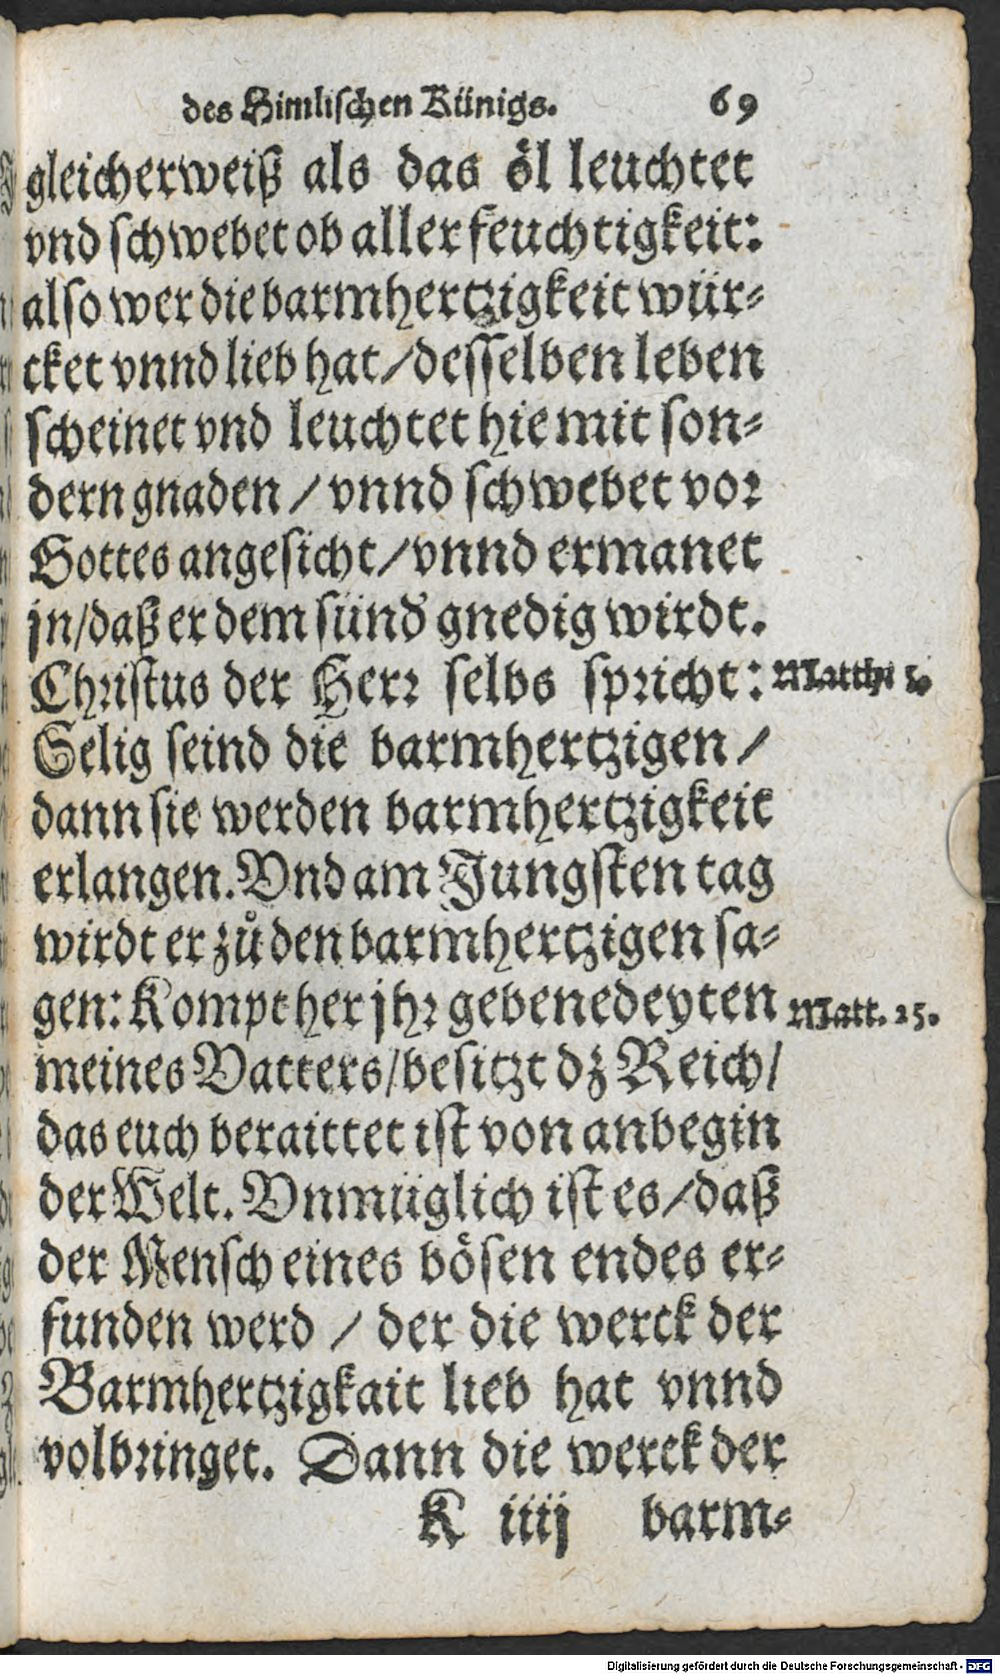 des Himlischen Künigs. 69
gleicherweiß als das öl leuchtet
vnd schwebet ob aller feuchtigkeit:
also wer die barmhertzigkeit wür⸗
cket vnnd lieb hat / desselben leben
scheinet vnd leuchtet hie mit son⸗
dern gnaden / vnnd schwebet vor
Gottes angesicht / vnnd ermanet
jn / daß er dem sünd' gnedig wirdt.
Christus der Herr selbs spricht: Matth. 5.
Selig seind die barmhertzigen /
dann sie werden barmhertzigkeit
erlangen. Vnd am Jungsten tag
wirdt er zů den barmhertzigen sa⸗
gen: Kompt her jhr gebenedeyten Matt. 25.
meines Vatters / besitzt dz Reich /
das euch beraittet ist von anbegin
der Welt. Vnmüglich ist es / daß
der Mensch eines bösen endes er⸗
funden werd / der die werck der
Barmhertzigkait lieb hat vnnd
volbringet. Dann die werck der
K iiij barm⸗
Digitalisierung gefördert durch die Deutsche Forschungsgemeinschaft - DFG